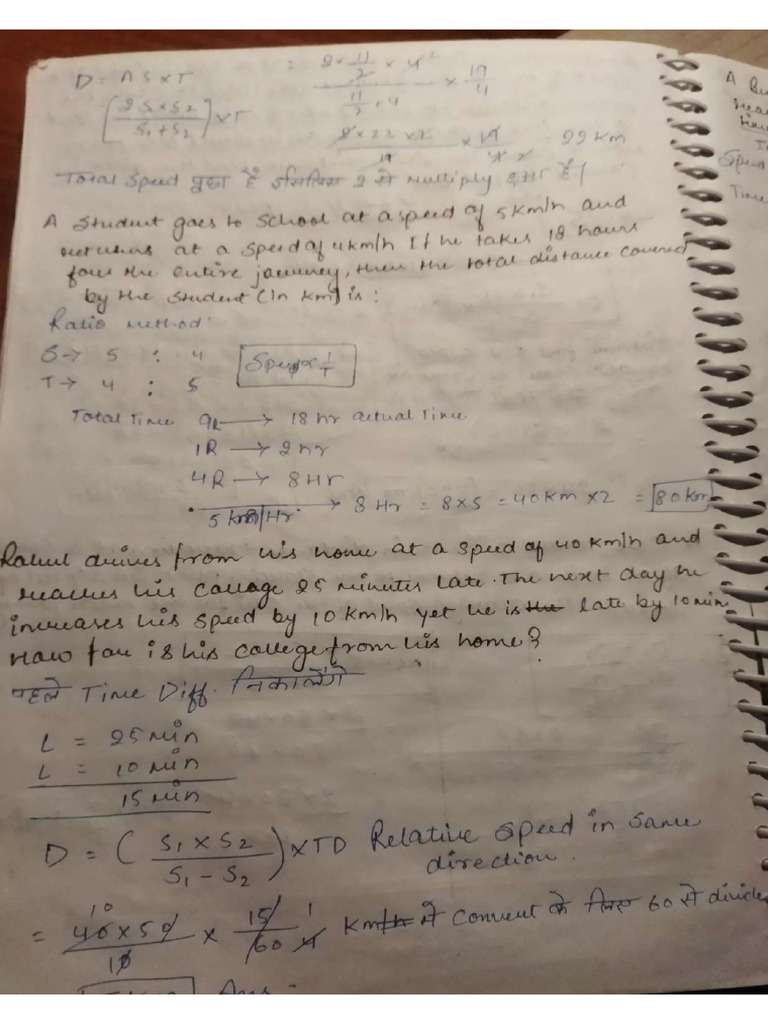 D = AS × T
= 2 × 11/2 × 4 / 11/2 + 4 × 19/4
[2 S1 × S2 / S1 + S2] × T
= 2 × 22 × 2 / 19 × 19 / 4 × 2 = 22 Km
Total Speed पुछा है इसलिए 2 से multiply हुआ है।
A student goes to school at a speed of 5 km/h and
returns at a speed of 4 km/h If he takes 18 hours
for the entire journey, then the total distance covered
by the student (in km) is :
Ratio method
S → 5 : 4
Speed ∝ 1/T
T → 4 : 5
Total Time 9R → 18 hr actual Time
1R → 2 hr
4R → 8 Hr
5 km/Hr → 8 Hr = 8×5 = 40 Km ×2 = 80 Km
Rahul drives from his home at a speed of 40 km/h and
reaches his collage 25 minutes late. The next day he
increases his speed by 10 Km/h yet he is late by 10 min
How far is his college from his home?
पहले Time Diff. निकालेंगे
L = 25 min
L = 10 min
15 min
D = (S1 × S2 / S1 - S2) × TD Relative speed in same
direction.
= 40 × 50 / 10 × 15 / 60 Km में convert के लिए 60 से divide
Ans -
A
Speed
Time